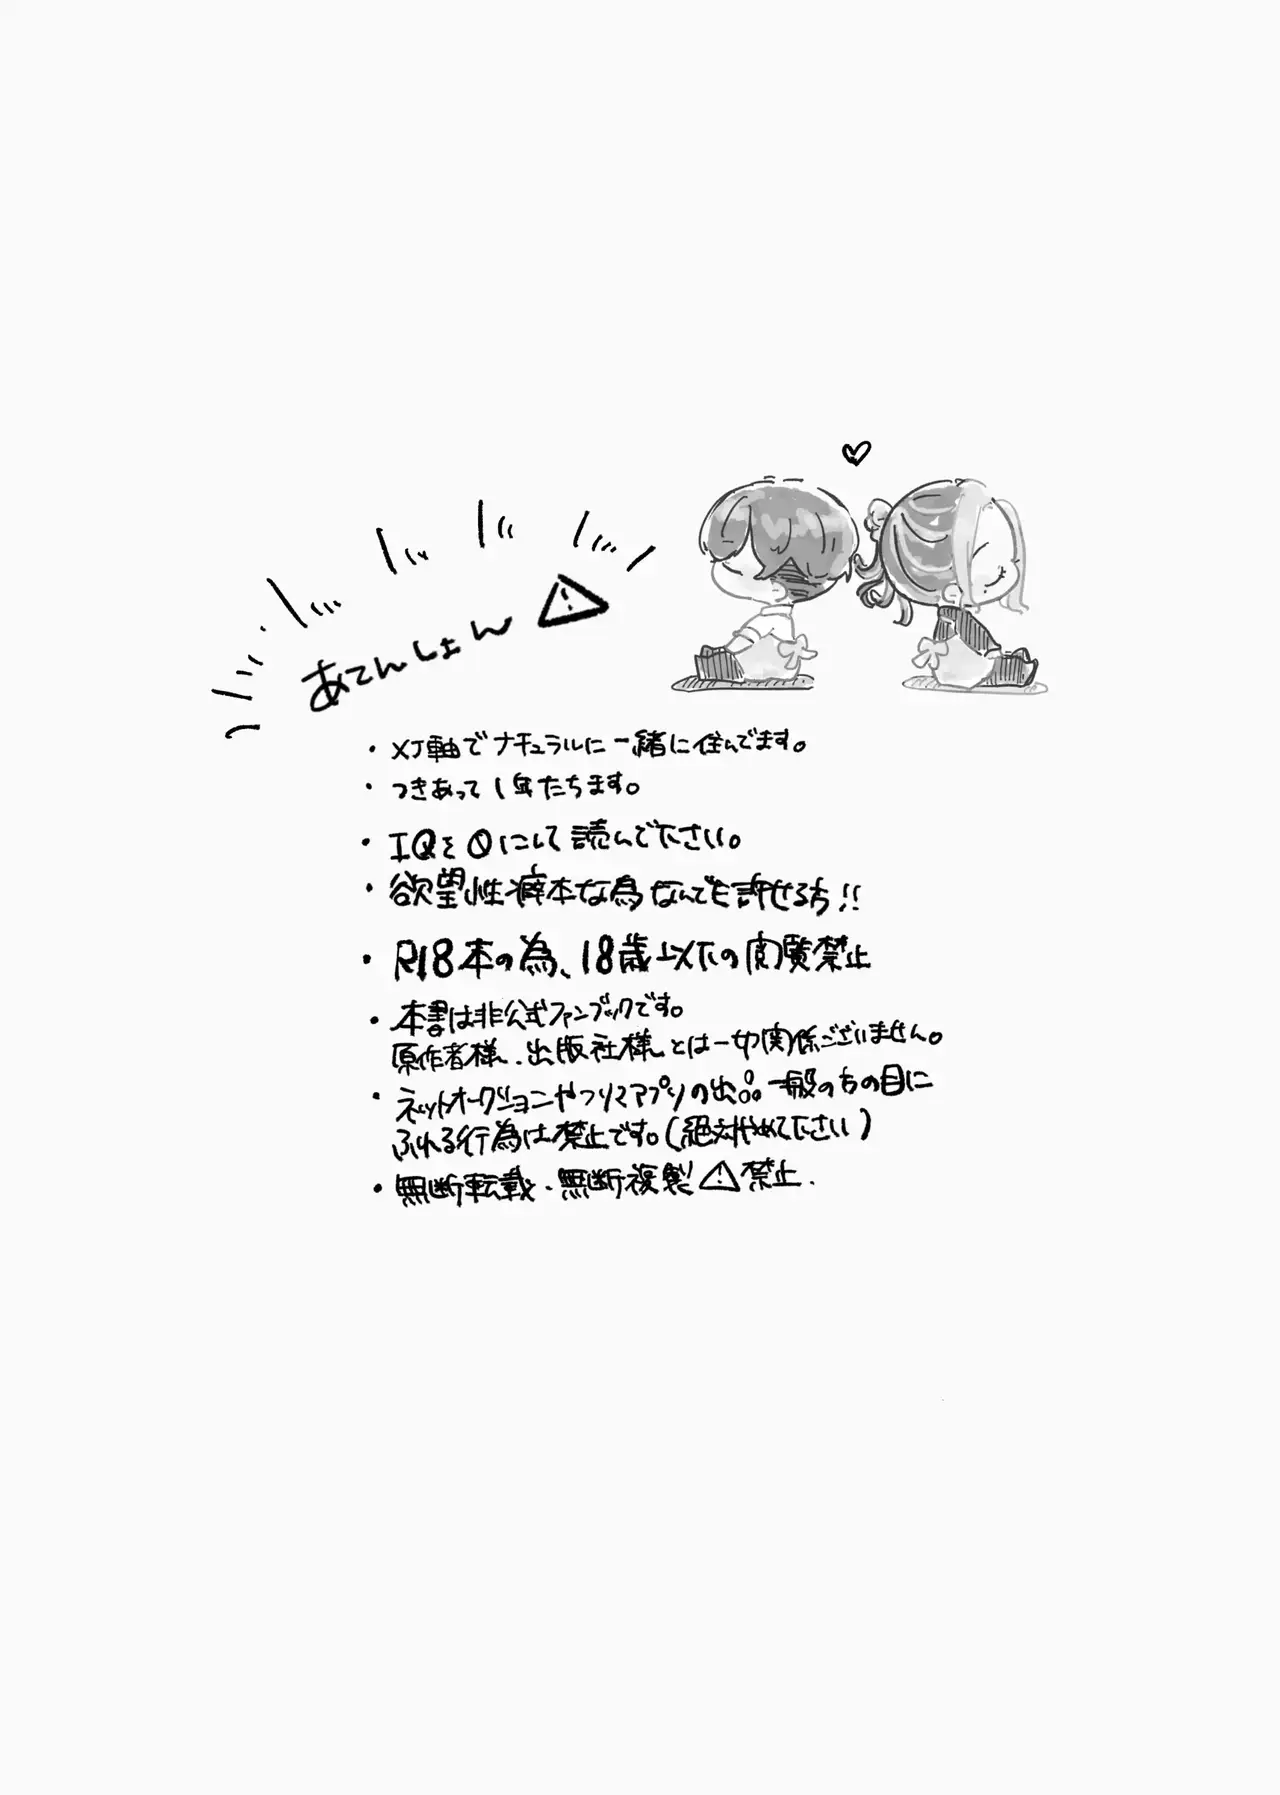 あてんしょん
・XJ軸でナチュラルに一緒に住んでます。
・つきあって1年たちます。
・IQを0にして読んで下さい。
・欲望性癖本な為なんでも許せる方!!
・R18本の為、18歳以下の閲覧禁止
・本書は非公式ファンブックです。
原作者様、出版社様とは一切関係ございません。
・ネットオークションやフリマアプリの出品 一般のものの目に
ふれる行為は禁止です。(絶対やめて下さい)
・無断転載・無断複製 禁止.